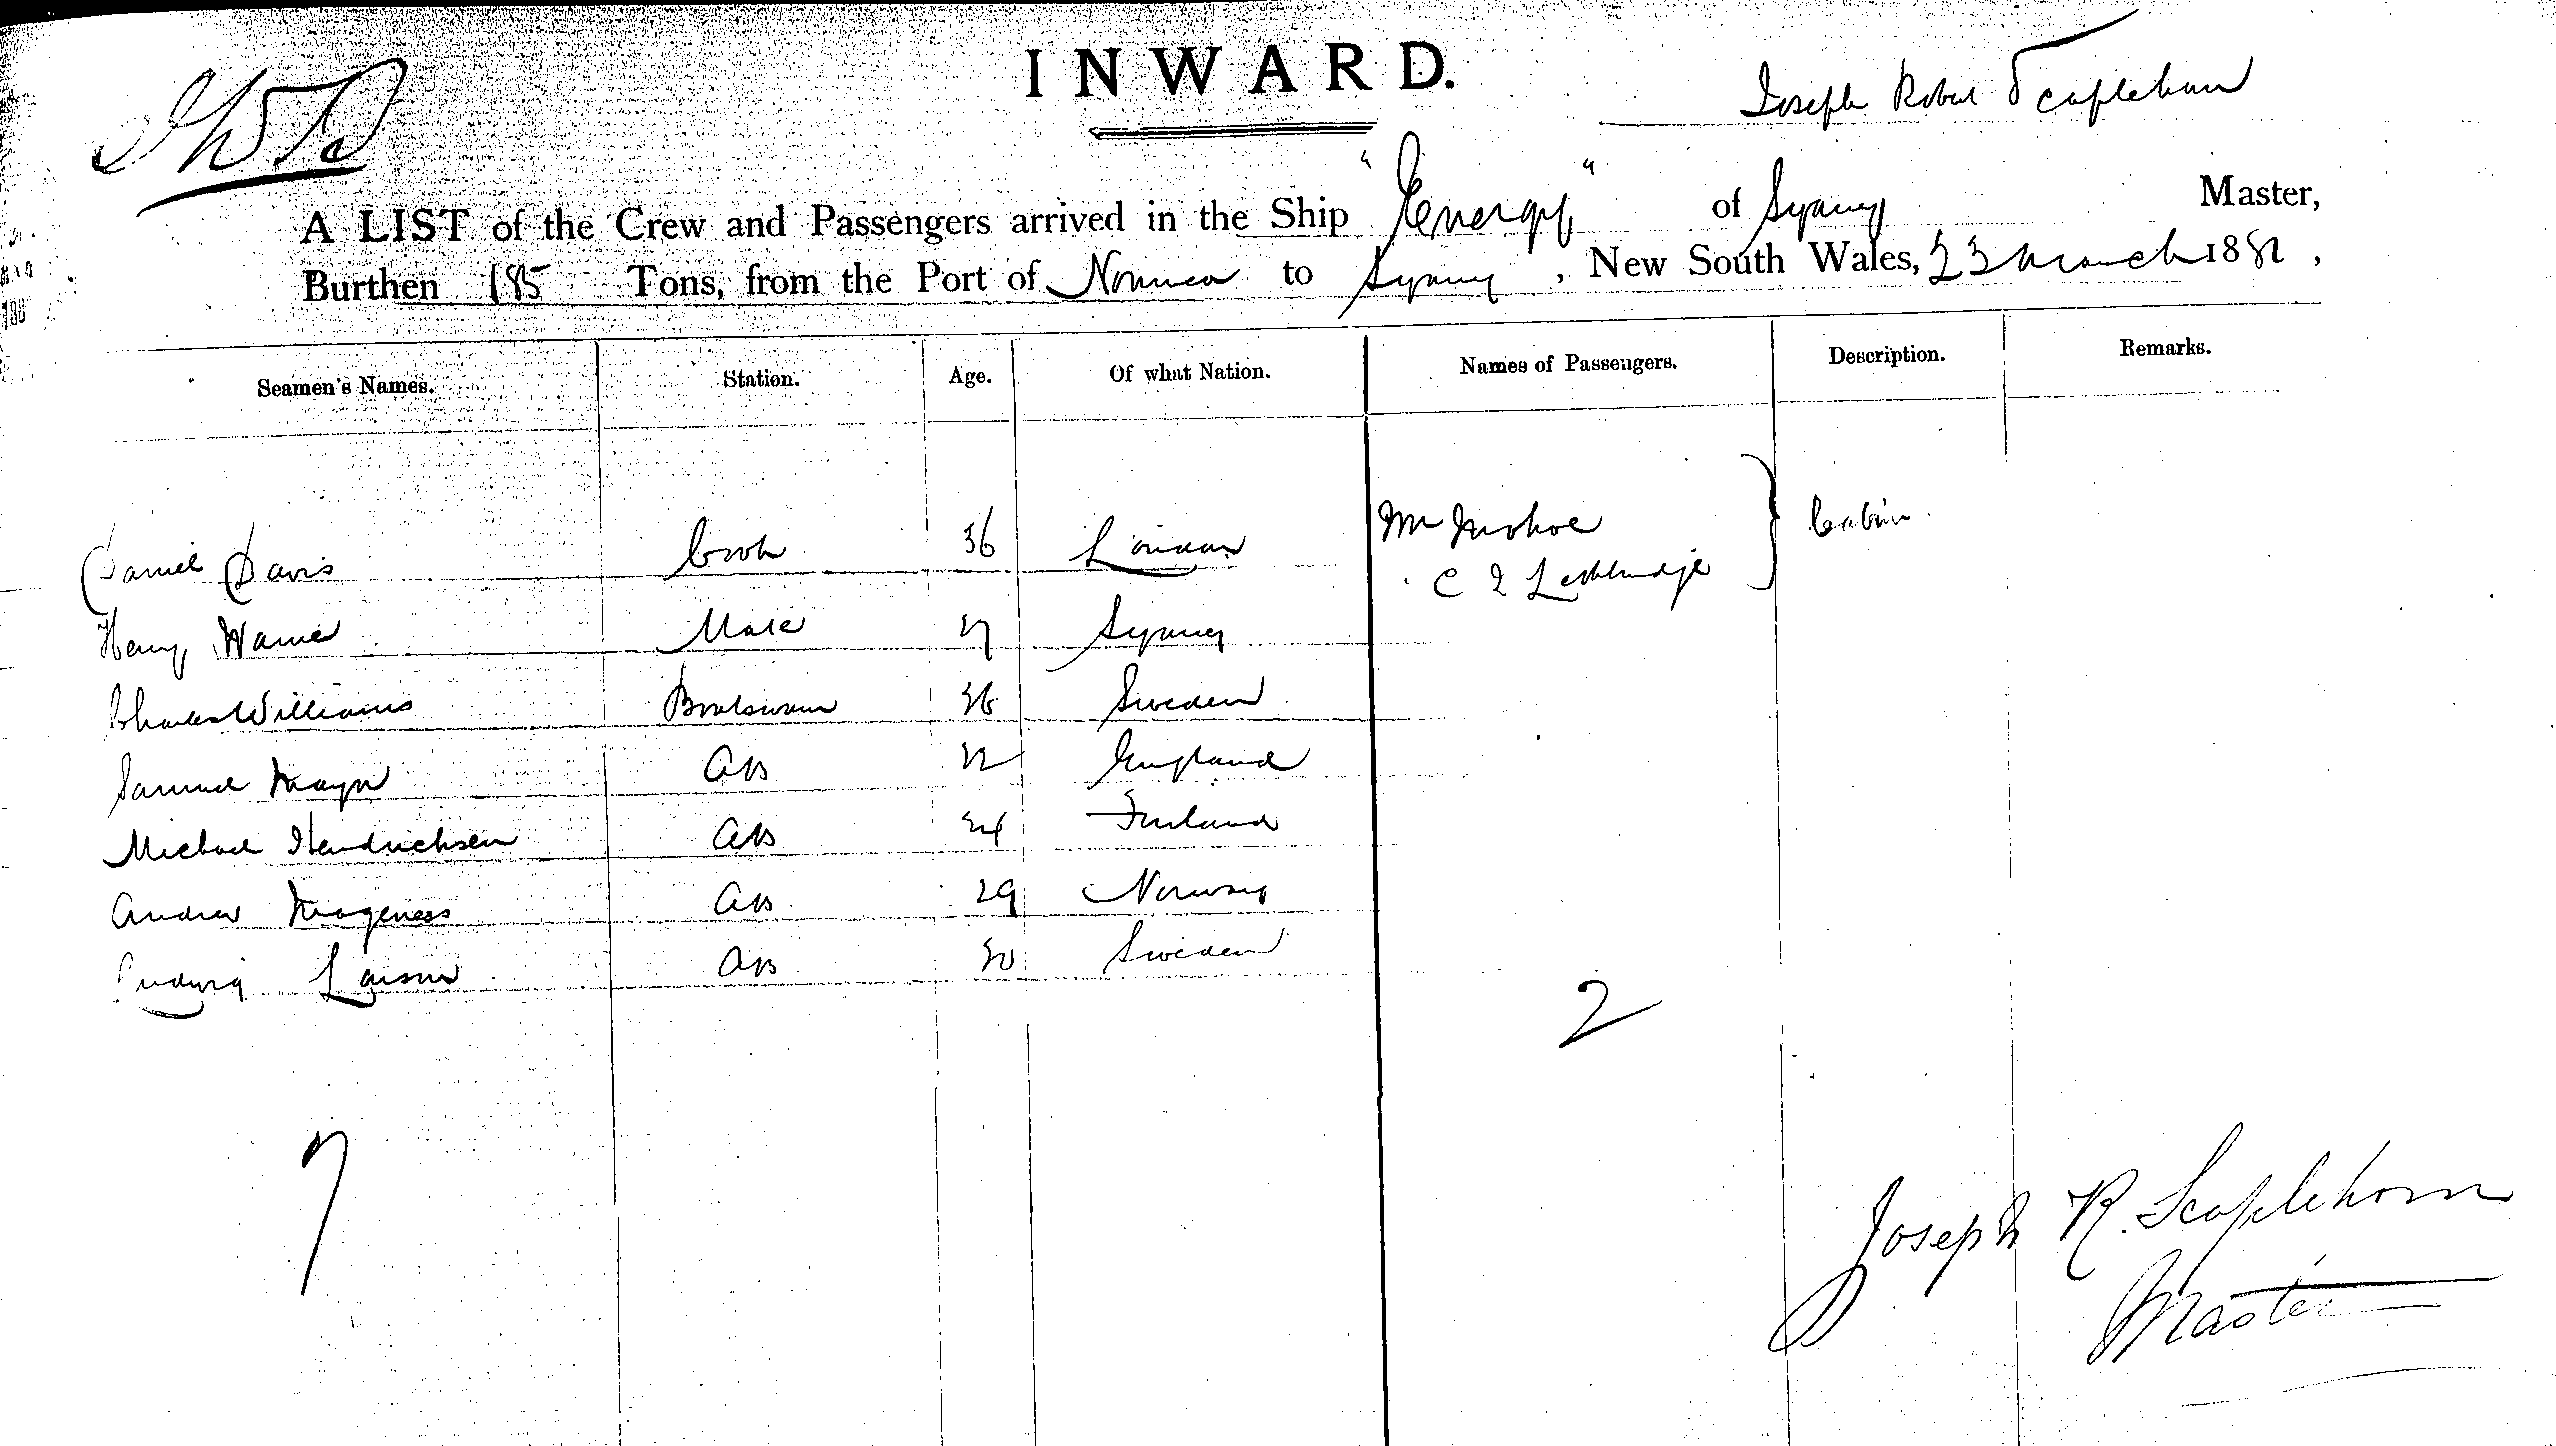 INWARD.
Joseph Robert Scaplehorn
A LIST of the Crew and Passengers arrived in the Ship "Energy" of Sydney Master,
Burthen 185 Tons, from the Port of Noumea to Sydney, New South Wales, 23 March 1882,
Seamen's Names. Station. Age. Of what Nation. Names of Passengers. Description. Remarks.
Daniel Davis Cook 36 London Mr Cabin
C
Henry Mate 27 Sydney
Charles Williams Boatswain 36 Sweden
Samuel AB 32 England
Michael Hendrichsen AB 34 Finland
Andrew Mogeness AB 29 Norway
Ludwig Larson AB 30 Sweden
2
7
Joseph R. Scaplehorn
Master